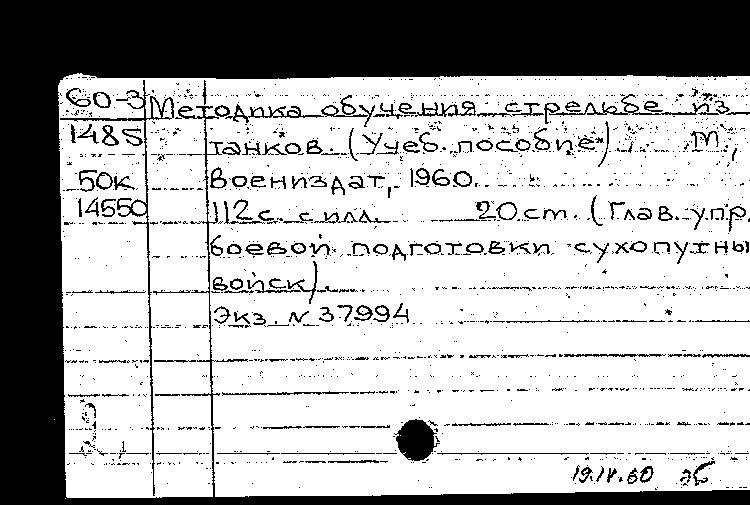 60-3 Методика обучения стрельбе из
1485 танков. (Учеб. пособие). М.,
50к Воениздат, 1960.
14550 112с. с илл. 20ст. (Глав. упр.
боевой подготовки сухопутны
войск).
Экз. N 37994
2,
19.IV.60 эб